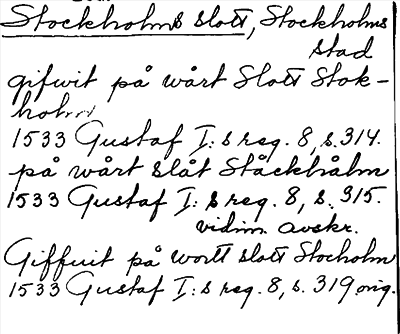 Stockholms slott, Stockholms
stad
gifwit på wårt Slott Stok-
holm
1533 Gustaf I:s reg. 8, s. 314.
på wårt slåt Ståckhålm
1533 Gustaf I:s reg. 8, s. 315.
vidim. avskr.
Giffuit på wortt slott Stocholm
1533 Gustaf I:s reg. 8, s. 319 orig.